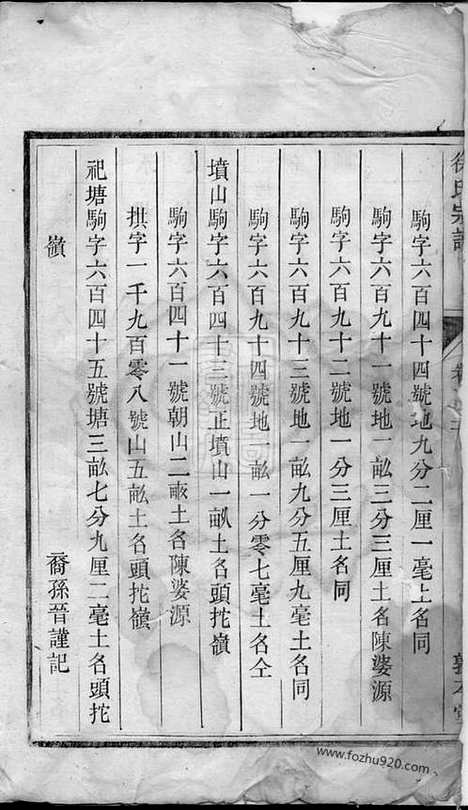 徐氏宗譜
駒字六百四十四號地九分二厘一毫土名同
駒字六百九十一號地一畝三分三厘土名陳婆源
駒字六百九十二號地一分三厘土名同
駒字六百九十三號地一畝九分五厘九毫土名同
駒字六百九十四號地一畝一分零七毫土名仝
墳山駒字六百四十三號正墳山一畝土名頭拕嶺
駒字六百四十一號朝山二畝土名陳婆源
拱字一千九百零八號山五畝土名頭拕嶺
祀塘駒字六百四十五號塘三畝七分九厘二毫土名頭拕
嶺
裔孫晉謹記
www.fozhu920.com